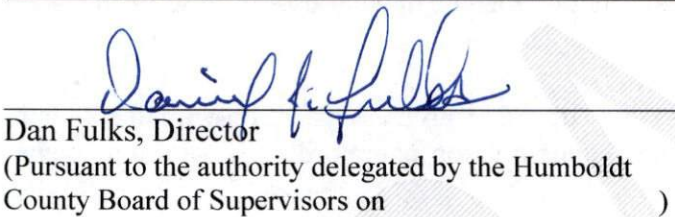 Daniel J. Fulks
Dan Fulks, Director
(Pursuant to the authority delegated by the Humboldt
County Board of Supervisors on )